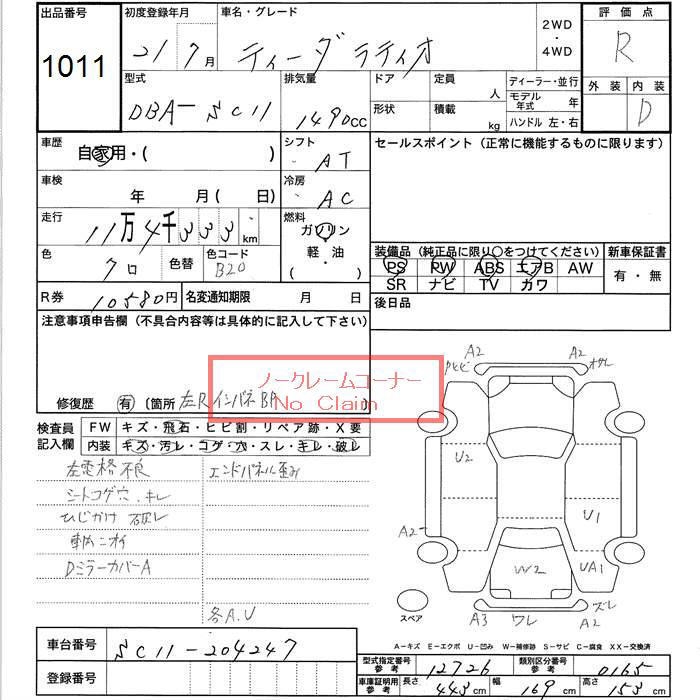 出品番号 初度登録年月 車名・グレード 2WD・4WD 評価点
1011 21/7月 ティーダ ラティオ R
型式 排気量 ドア 定員 人 ディーラー・並行 外装 内装
DBA-SC11 1490cc 形状 積載 kg モデル年式 年 D
ハンドル 左・右
車歴 自家用・( ) シフト AT セールスポイント(正常に機能するものに限ります)
車検 年 月(日) 冷房 AC
走行 11万4千333km 燃料 ガソリン
軽・油
・( )
色 クロ 色替 色コード B20
装備品(純正品に限り○をつけてください) 新車保証書
PS PW ABS エアB AW 有・無
SR ナビ TV カワ
R券 10580円 名変通知期限 月 日 後日品
注意事項申告欄(不具合内容等は具体的に記入して下さい)
ノークレームコーナー
No Claim
修復歴 有 〔箇所 左Rインパネ BP
検査員記入欄 FW キズ・飛石・ヒビ割・リペア跡・X要
内装 キズ・汚レ・コゲ・穴・スレ・キレ・破レ
左電格不良 エンドパネル歪み
シートコゲ穴、キレ
ひじかけ破レ
車内ニオイ
DミラーカバーA
各A.U
A2 A2
U2
A2 U1
W2 UA1
スペア A3 ワレ ズレ A2
A-キズ E-エクボ U-凹み W-補修跡 S-サビ C-腐食 XX-交換済
車台番号 SC11-204247
登録番号
型式指定番号 参考 12726 類別区分番号 参考 0165
車庫証明用 参考 長さ 443cm 幅 169cm 高さ 153cm